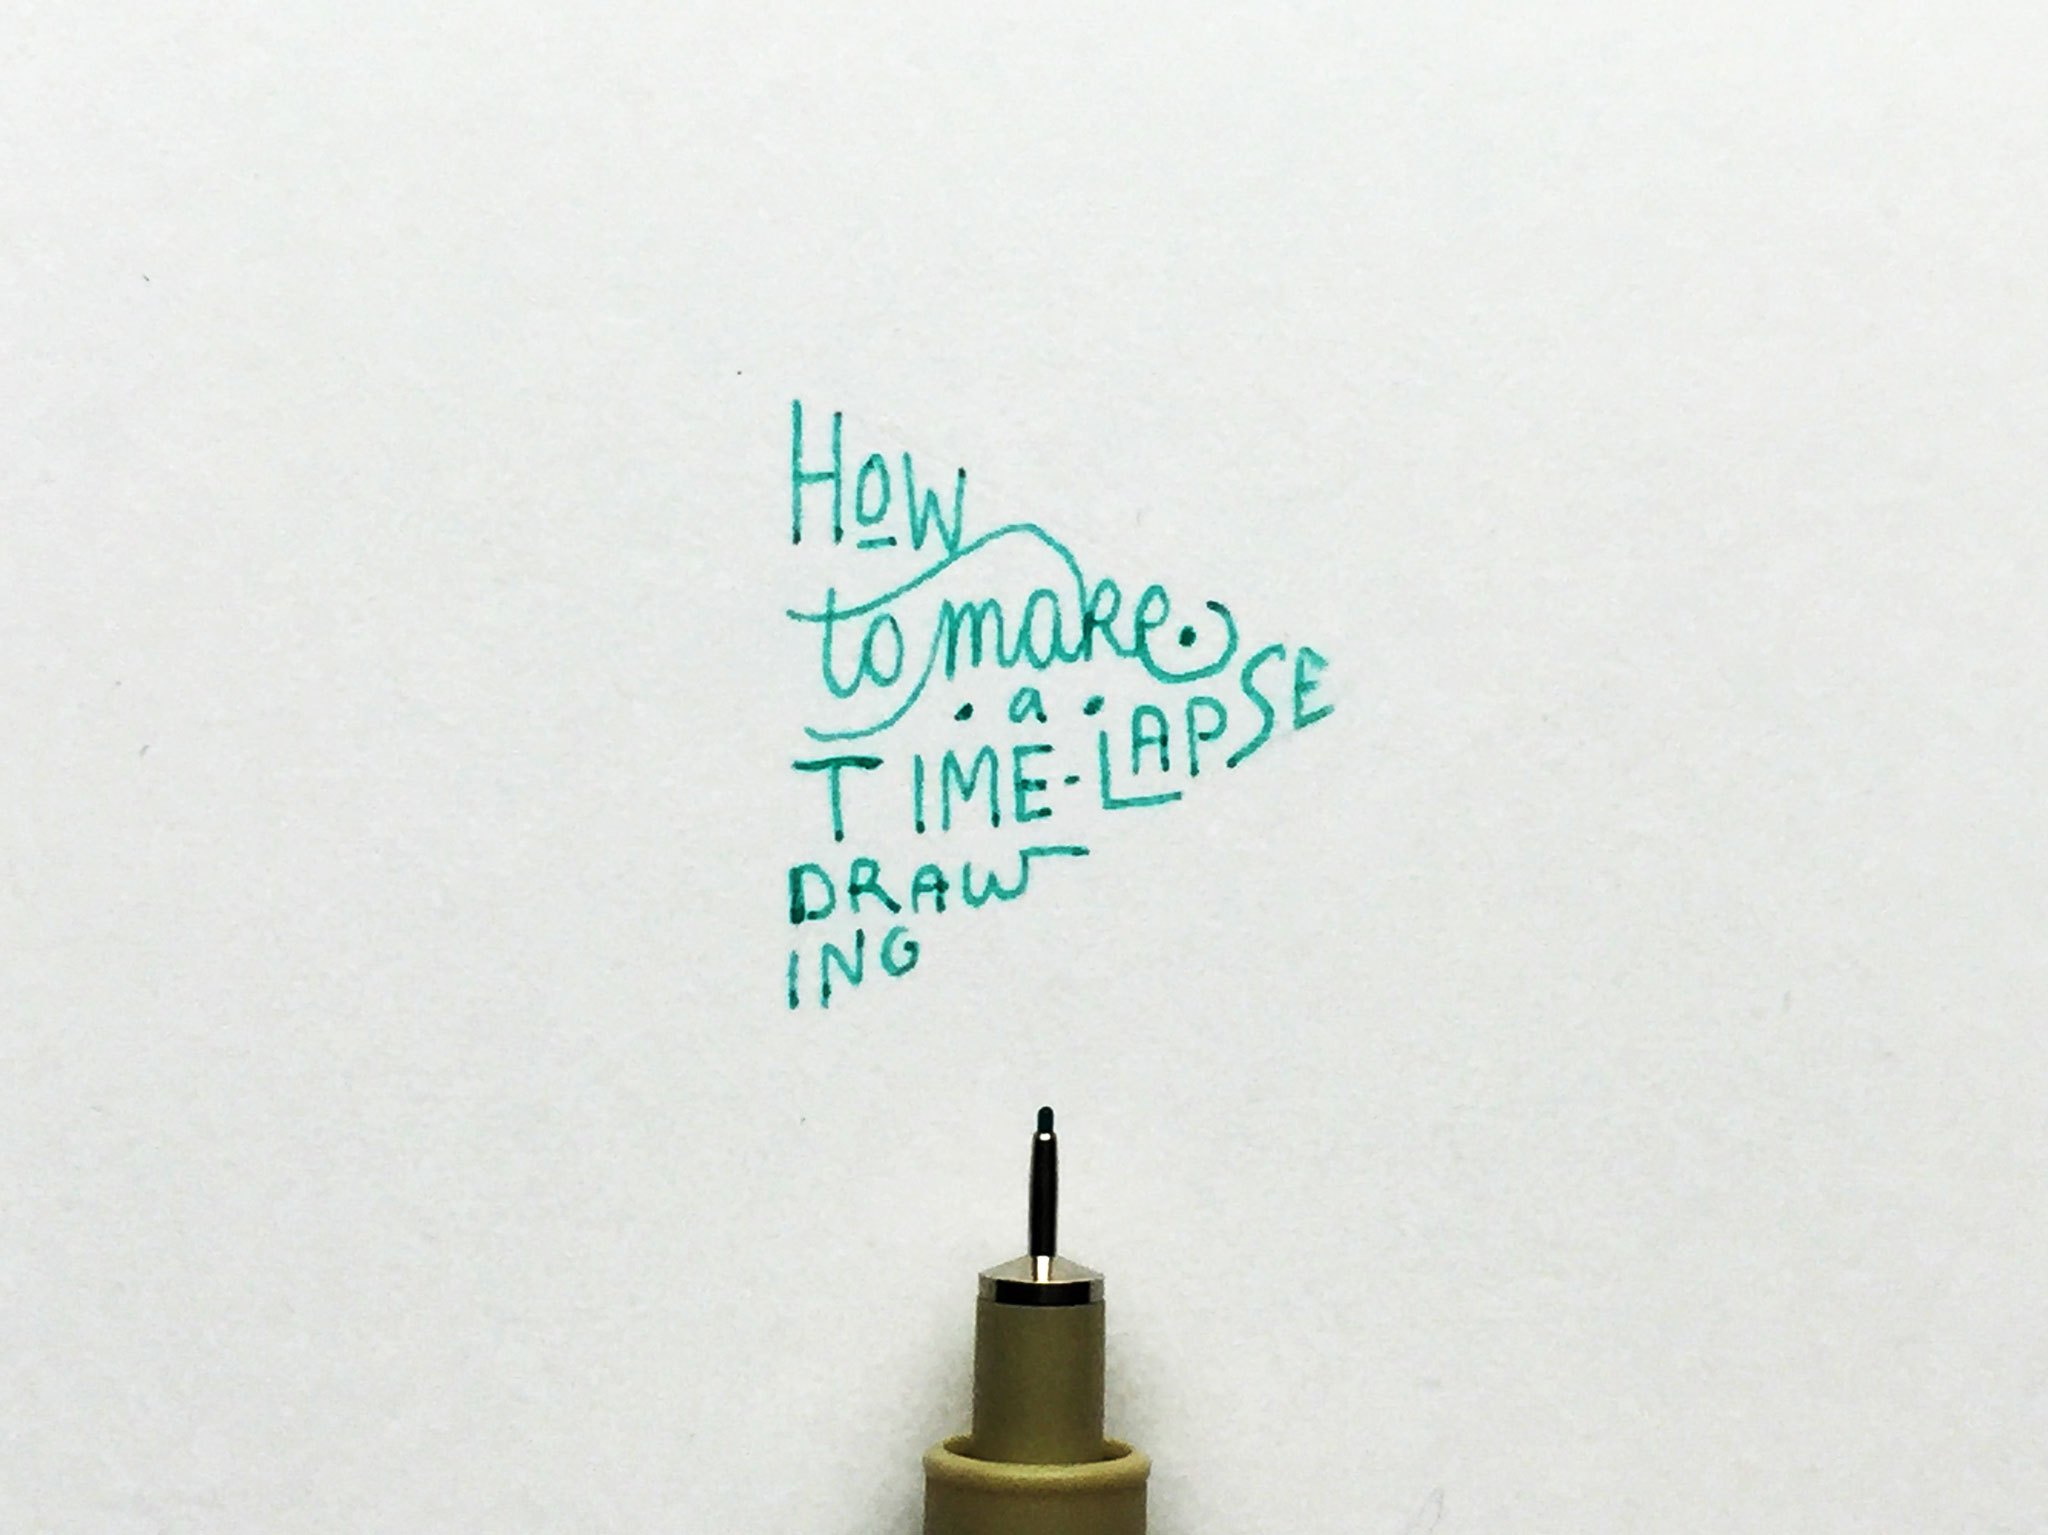 How
to make
a
TIME-LAPSE
DRAW
ING